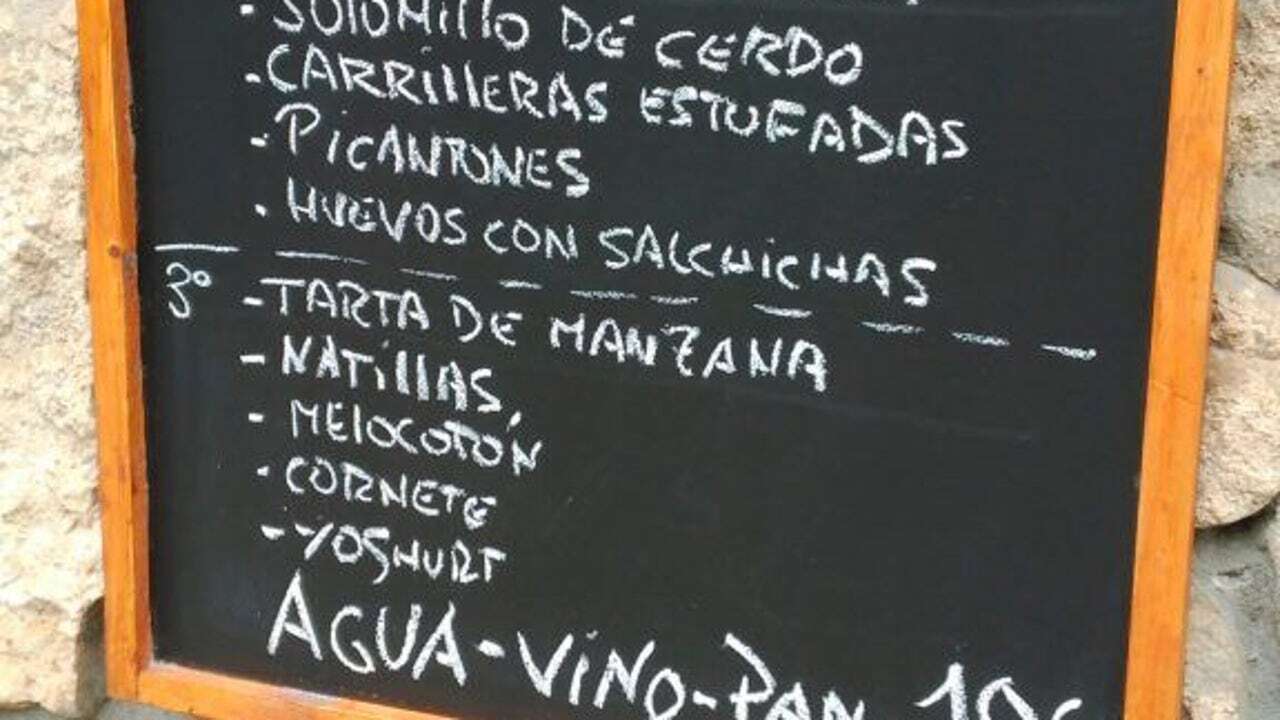 - SOLOMILLO DE CERDO
- CARRILLERAS ESTUFADAS
- PICANTONES
. HUEVOS CON SALCHICHAS
3º - TARTA DE MANZANA
- NATILLAS,
- MELOCOTÓN
- CORNETE
- YOGHURT
AGUA - VINO - PAN